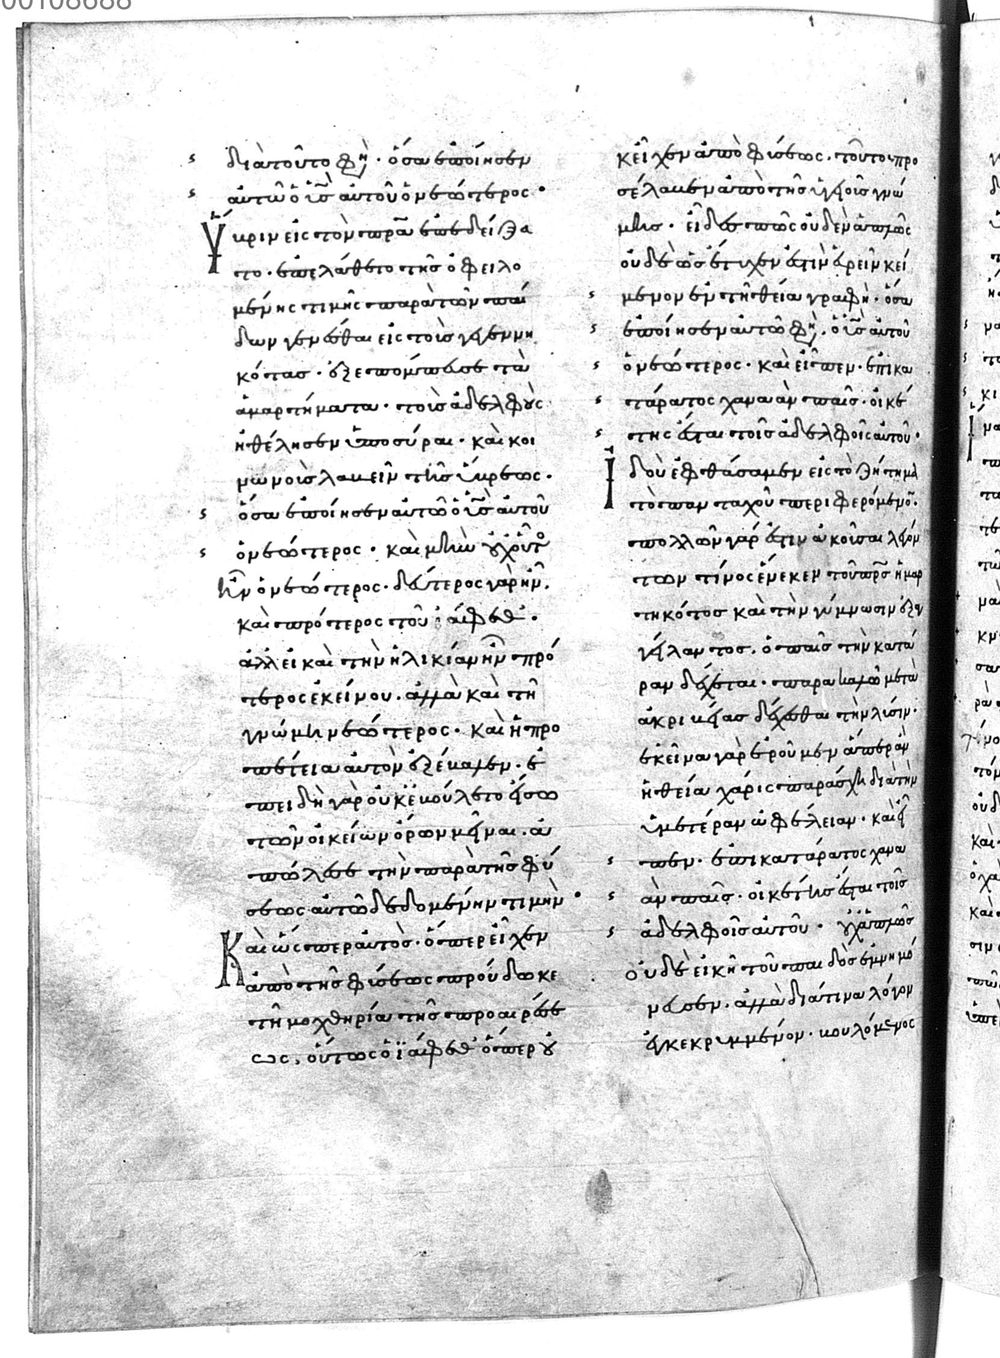 00108688
διὰτοῦτο φη· ὅσα ἐποίησεν
αὐτῶ ὁ υἱὸς αὐτοῦ ὁ νεώτερος·
Ὕβριν εἰς τὸν πρα ἐπεδείξα
το· ἐπελάθετο τῆς ὀφειλο
μένης τιμῆς παρὰ τῶν παί
δων γενέσθαι εἰς τοὺς γεγεννη
κότας· ἐξεπόμπευσε τὰ
ἁμαρτήματα· τοὺς ἀδελφοὺς
ἠθέλησεν ὑποσύραι· καὶ κοι
νωνοὺς λαβεῖν τῆς ὕβρεως·
ὅσα ἐποίησεν αὐτῶ ὁ υἱὸς αὐτοῦ
ὁ νεώτερος· καὶ μὴν οὐχ οὗτος
ἦν ὁ νεώτερος· δεύτερος γὰρ ἦν.
καὶ πρότερος τοῦ ἰάφεθ·
ἀλλ' εἰ καὶ τὴν ἡλικίαν ἦν πρό
τερος ἐκείνου. ἀλλὰ καὶ τῆ
γνώμη νεώτερος· καὶ ἡ προ
πέτεια αὐτὸν ἐξέβαλεν· ἐ
πειδὴ γὰρ οὐκ ἐβούλετο εἴσω
τῶν οἰκείων ὅρων μεῖναι. ἀ
πώλεσε τὴν παρὰ τῆς φύ
σεως αὐτῶ δεδομένην τιμὴν·
Καὶ ὥσπερ αὐτὸς· ὅπερ εἶχεν
ἀπὸ τῆς φύσεως προύδωκε
τῆ μοχθηρία τῆς προαιρέσε
ως, οὕτως ὁ ἰάφεθ ὅπερ οὐ
κ εἶχεν ἀπὸ φύσεως. τοῦτο προ
σέλαβεν ἀπὸ τῆς ὑγιοῦς γνώ
μης· εἶδες πῶς οὐδὲν ἁπλῶς
οὐδὲ ὡς ἔτυχεν ἐστὶν εὑρεῖν κεί
μενον ἐν τῆ θεία γραφῆ· ὅσα
ἐποίησεν αὐτῶ φη, ὁ υἱὸς αὐτοῦ
ὁ νεώτερος· καὶ εἶπεν· ἐπικα
τάρατος χαναὰν παῖς· οἰκέ
της ἔσται τοῖς ἀδελφοῖς αὐτοῦ·
Ἰδοὺ ἐφθάσαμεν εἰς τὸ ζήτημα
τὸ πανταχοῦ περιφερόμενον.
πολλῶν γάρ ἐστιν ἀκοῦσαι λεγόν
των τίνος ἕνεκεν τοῦ πρς ἡμαρ
τηκότος καὶ τὴν γύμνωσιν ἐξαγ
γείλαντος. ὁ παῖς τὴν κατά
ραν δέχεται· παρακαλῶ μετὰ
ἀκριβείας δέχεσθαι τὴν λύσιν·
ἐκεῖνα γὰρ ἐροῦμεν ἅπερ ἂν
ἡ θεία χάρις παράσχη διὰ τὴν
ὑμετέραν ὠφέλειαν· καὶ εἶ
πεν· ἐπικατάρατος χανα
ὰν παῖς· οἰκέτης ἔσται τοῖς
ἀδελφοῖς αὐτοῦ· οὐχ ἁπλῶς
οὐδὲ εἰκῆ τοῦ παιδὸς ἐμνημό
νευσεν. ἀλλὰ διά τινα λόγον
ἐγκεκρυμμένον· βουλόμενος